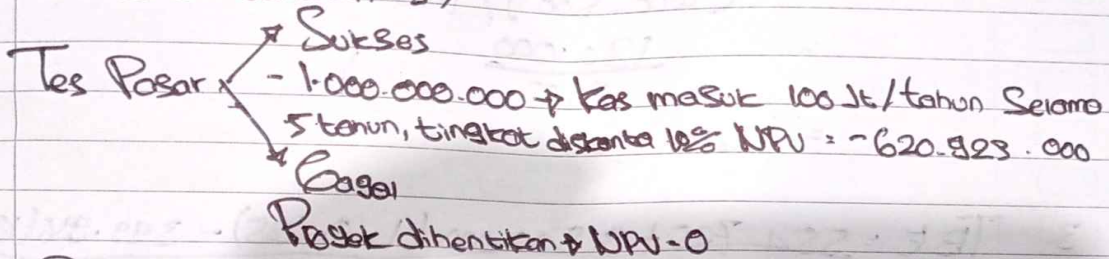 Sukses
Tes Pasar - 1.000.000.000 → Kas masuk 100 Jt/tahun Selama
5 tahun, tingkat diskonto 10% NPV = -620.923.000
Gagal
Proyek dihentikan → NPV = 0